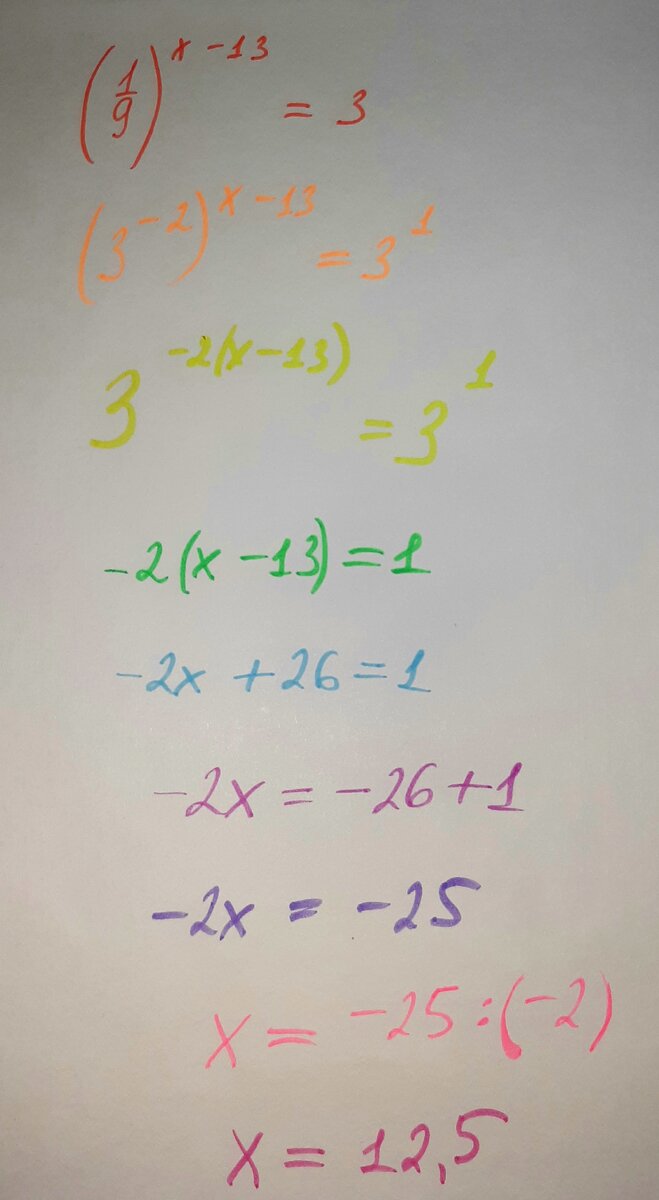 (1/9)^(x-13) = 3
(3^-2)^(x-13) = 3^1
3^(-2(x-13)) = 3^1
-2(x-13)=1
-2x+26=1
-2x=-26+1
-2x=-25
x=-25:(-2)
x=12,5